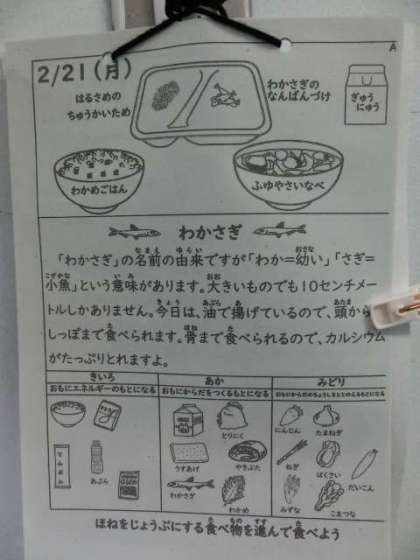 A
2/21(月)
はるさめの
ちゅうかいため
わかさぎの
なんばんづけ
ぎゅう
にゅう
わかめごはん
ふゆやさいなべ
わかさぎ
「わかさぎ」の名前の由来ですが「わか=幼い」「さぎ=
小魚」という意味があります。大きいものでも10センチメー
トルしかありません。今日は、油で揚げているので、頭から
しっぽまで食べられます。骨まで食べられるので、カルシウム
がたっぷりとれますよ。
きいろ
あか
みどり
おもにエネルギーのもとになる
おもにからだをつくるもとになる
おもにからだのちょうしをととのえるもとになる
とりにく
にんじん
たまねぎ
あぶら
うすあげ
やきぶた
ねぎ
はくさい
だいこん
わかさぎ
わかめ
みずな
こまつな
ほねをじょうぶにする食べ物を進んで食べよう